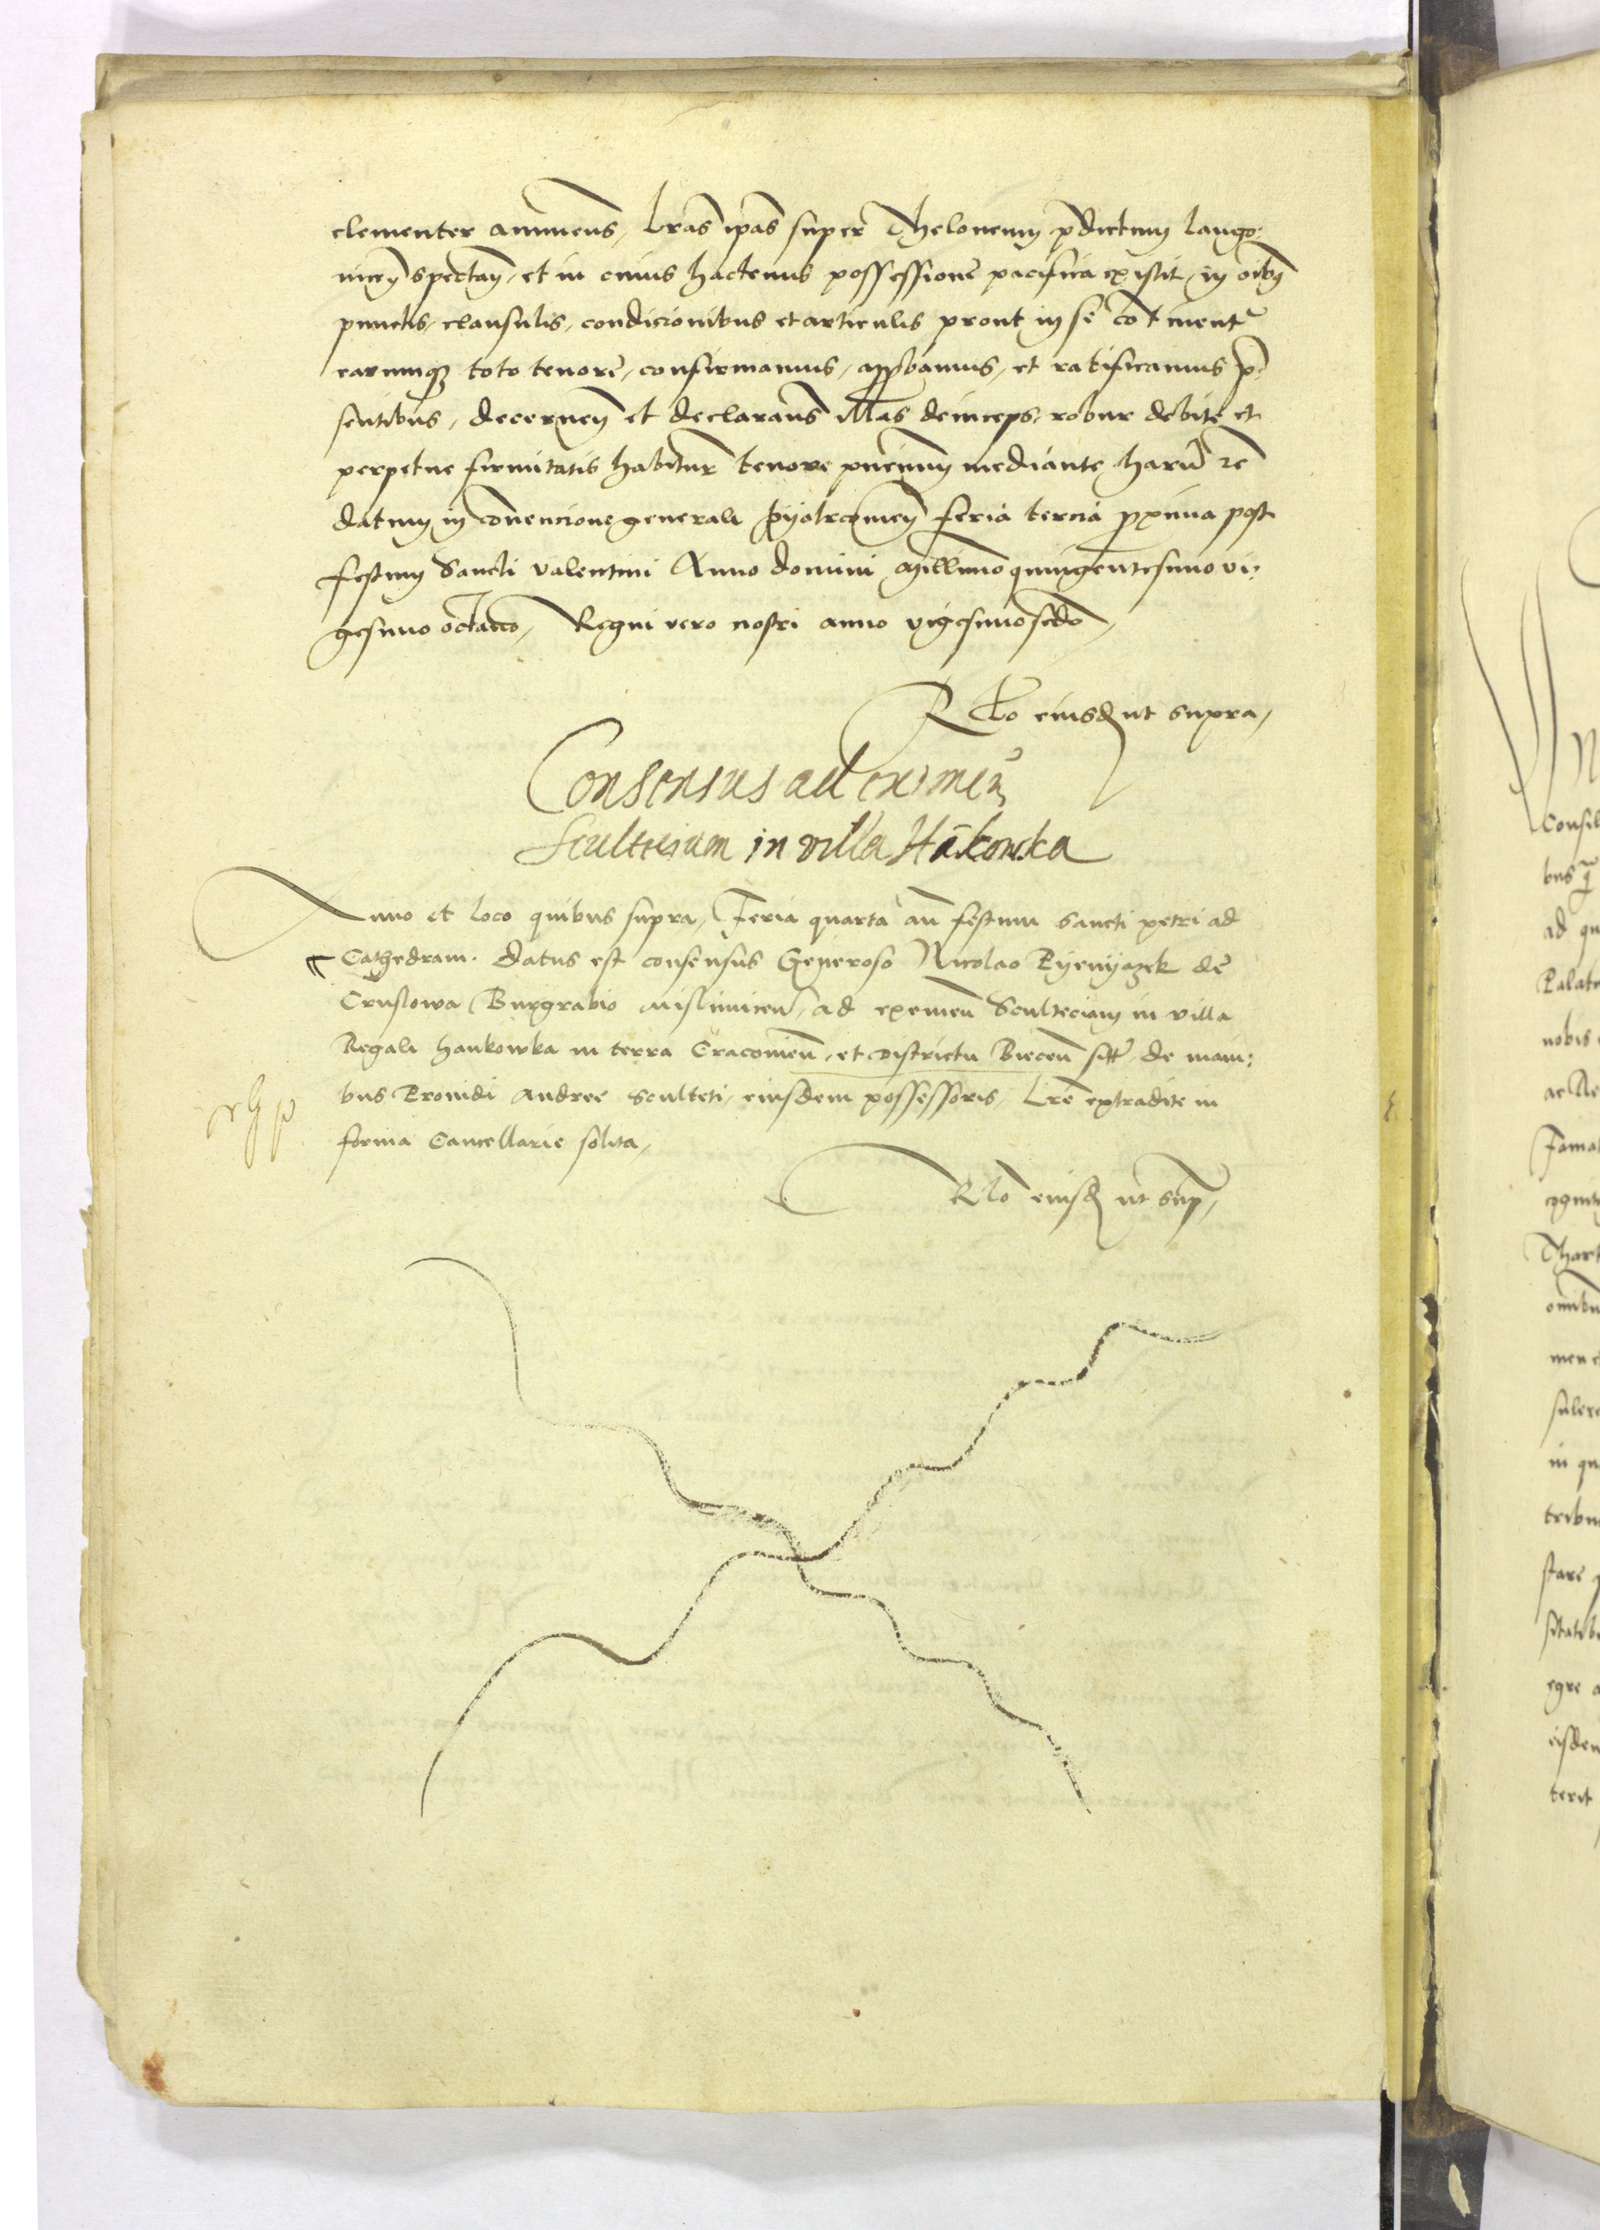 clementer annuens, lras ipas super Thelonemu pdictum lango:
nicen spectan, et in cuius hactenus possessione pacifica existit, in oibus
punctis, clausulis, condicionibus et articulis prout in se cotinent
earumque toto tenore, confirmamus, approbamus, et ratificamus p:
sentibus, decernen et declarans illas deinceps robur debite et
perpetue firmitatis habitur tenore pncium mediante haru re
datum in convencione generali Pyotrcovien feria tercia proxima post
festum Sancti Valentini Anno domini Millimo quingentesimo vi:
gesimo octavo, Regni vero nostri anno vigesimo scdo,
Rlo eiusd ut supra,
Consensus ad eximen
Scultetiam in villa Hakowka
Anno et loco quibus supra, Feria quarta an festum Sancti petri ad
Cathedram. datus est consensus Generoso Nicolao Pyenyazek de
Cruslowa Burgrabio Mislimicen, ad exemen Sculteciam in villa
Regali hankowka in terra Cracovien, et districtu Biecen sitt, de mani:
bus Providi Andree Sculteti, eiusdem possessoris, Lre extradite in
forma Cancellarie solita,
Rlo eiusd ut sup,
Consil
bus
ad qu
Palati
nobis
ac Re
Famat
Thart
omnibu
men e
in qu
tribu
stare
egre a
eisdem
terit